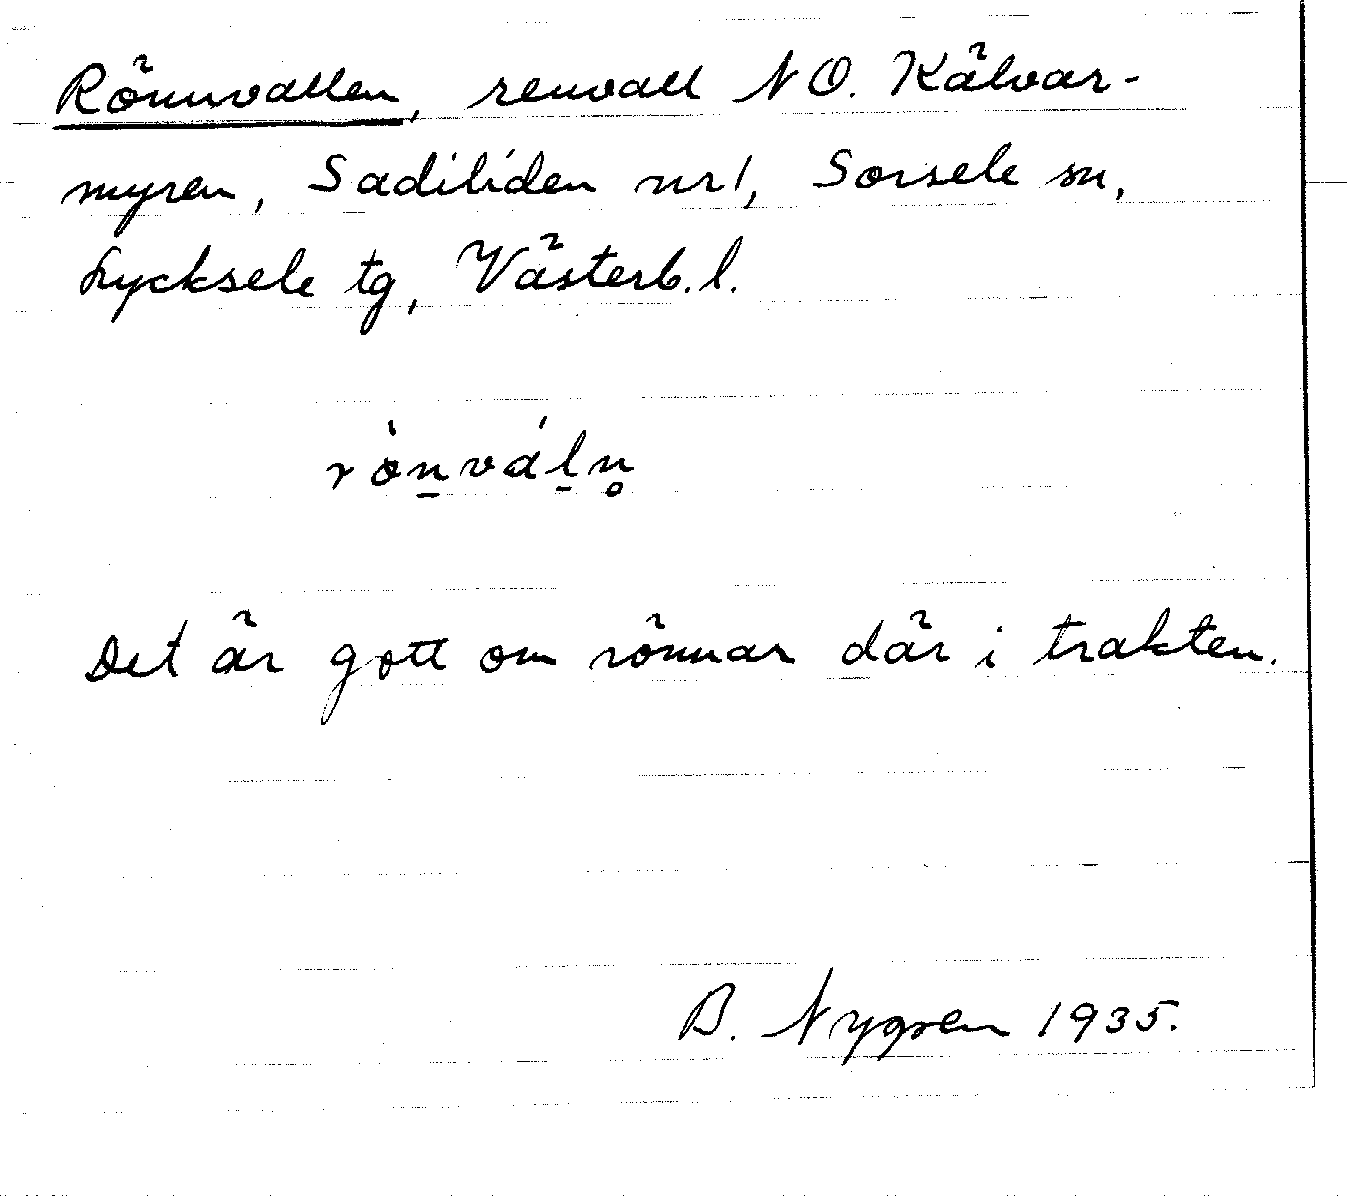 Rönnvallen, renvall NO. Kälvar-
myren, Sadiliden nr 1, Sorsele sn,
Lycksele tg, Västerb. l.
rö̀n̲vál̲n̥
Det är gott om rönnar där i trakten.
B. Nygren 1935.